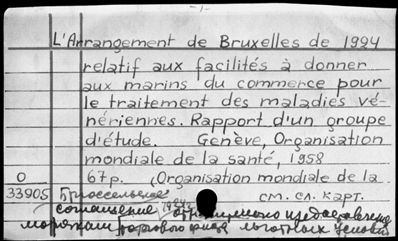 - 1 -
L'Arrangement de Bruxelles de 1924
relatif aux facilités à donner
aux marins du commerce pour
le traitement des maladies vé-
nériennes. Rapport d'un groupe
d'étude. Genève, Organisation
mondiale de la santé, 1958
0 67p. (Organisation mondiale de la
33905 Брюссельское см. сл. карт.
соглашение 1924г. относительно предоставления
морякам торгового флота льготных условий